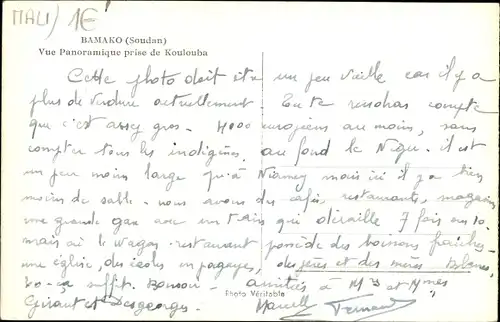 MALI) 1€
BAMAKO (Soudan)
Vue Panoramique prise de Koulouba
Cette photo doit être un peu vieille car il y a
plus de verdure actuellement. Tu te rendras compte
que c'est assez gros. 4000 européens au moins, sans
compter tous les indigènes. au fond le Niger. il est
un peu moins large qu'à Niamey mais ici il y a bien
moins de sable. nous avons des cafés, restaurants, magasins
une grande gare avec un train qui déraille 7 fois en 10.
mais où le wagon-restaurant possède des boissons fraîches.
une église, des écoles en pagayes, des pères et des mères Blancs,
ça suffit. Bonsoir. amitiés à Mrs et Mmes
Girant et Desgeorges. Marcelle Fernand
Photo Véritable